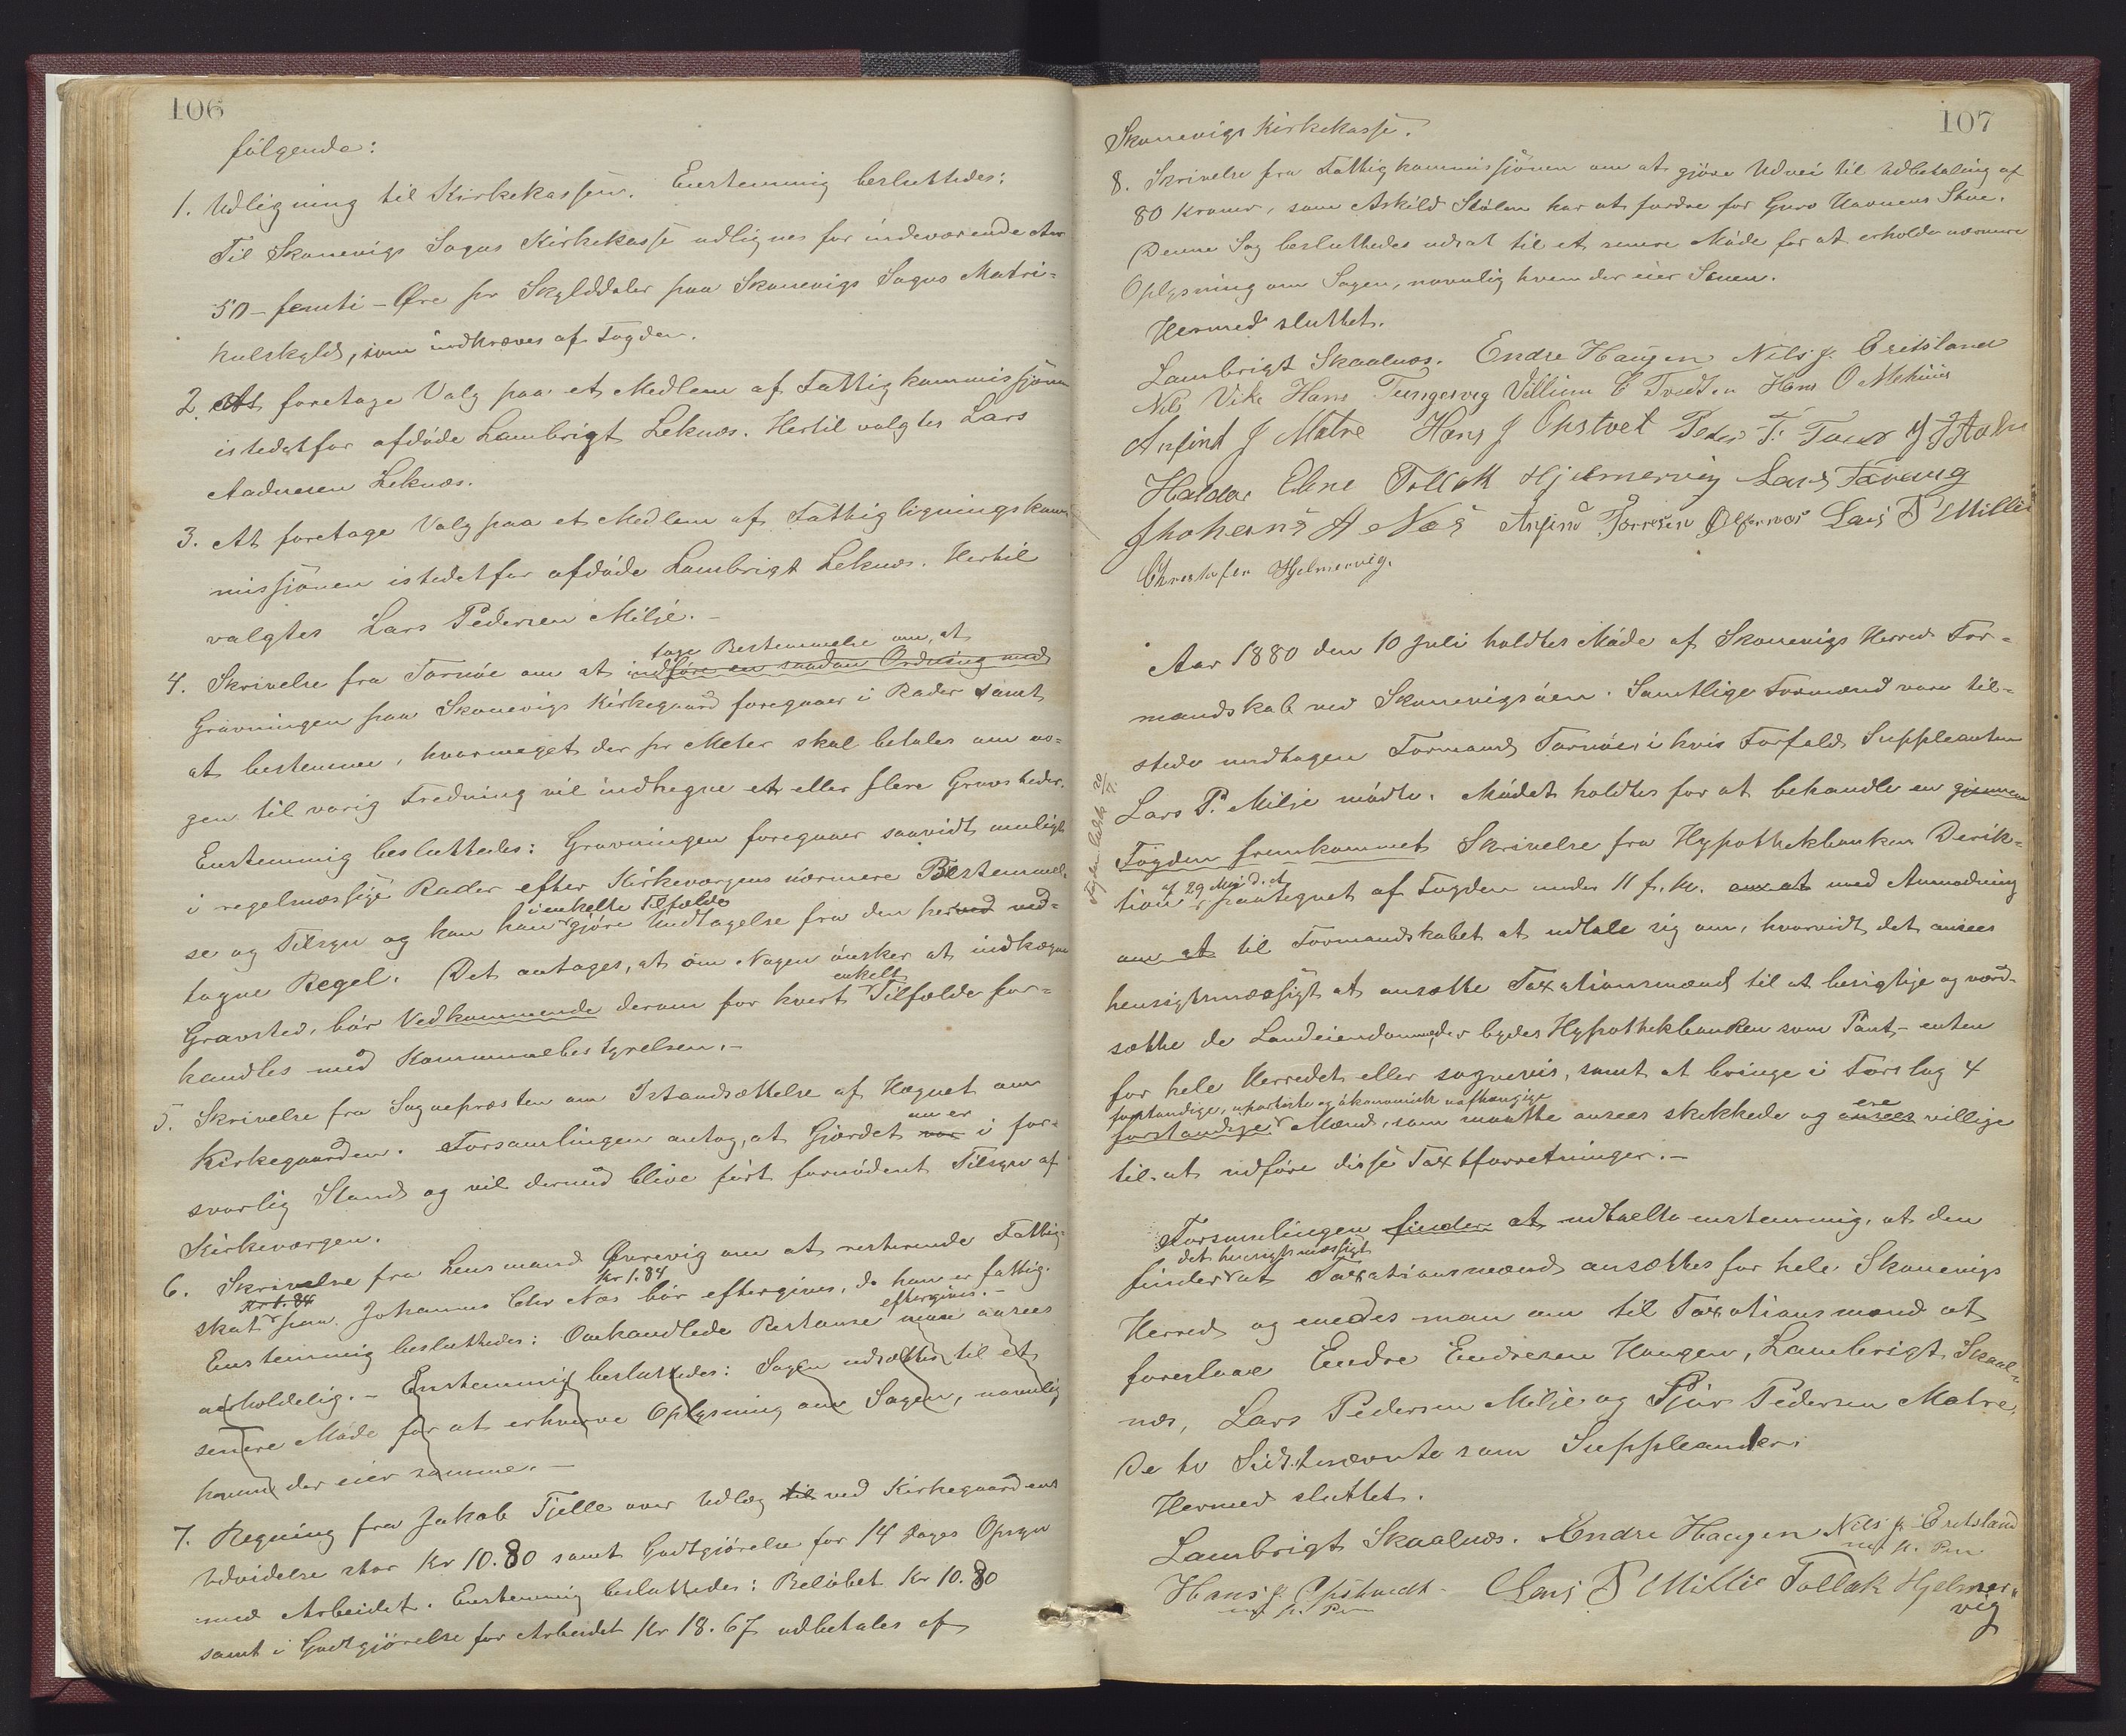 106
følgende:
1. Udligning til Kirkekassen. Enstemmig besluttedes:
Til Skonevigs Sogns Kirkekasse udlignes for indeværende Aar
50 - femti - Øre pr Skylddaler paa Skonevigs Sogns Matri-
kulskyld, som indkræves af Fogden.
2. At foretage Valg paa et Medlem af Fattigkommissjonen
istedetfor afdøde Lambrigt Leknæs. Hertil valgtes Lars
Aadnesen Leknæs.
3. At foretage Valg paa et Medlem af Fattigligningskom-
missjonen istedetfor afdøde Lambrigt Leknæs. Hertil
valgtes Lars Pedersen Milje. -
tage Bestemmelse om, at
4. Skrivelse fra Tornøe om at indføre en saadan Ordning med
Gravningen paa Skonevigs Kirkegaard foregaar i Rader samt
at bestemme, hvormeget der pr Meter skal betales om no-
gen til varig Fredning vil indhegne et eller flere Gravsteder.
Enstemmig besluttedes: Gravningen foregaar saavidt muligt
i regelmæssige Rader efter Kirkeværgens nærmere Bestemmel-
i enkelte Tilfælde
se og Tilsyn og kan han gjøre Undtagelse fra den herved ved-
tagne Regel. Det antages, at om Nogen ønsker at indhegne
enkelt
Gravsted, bør Vedkommende derom for hvert Tilfælde for-
handles med Kommunebestyrelsen. -
5. Skrivelse fra Sognepræsten om Istandsættelse af Hegnet om
nu er
Kirkegaarden. Forsamlingen antog, at Gjærdet var i for-
svarlig Stand og vil dermed blive ført fornødent Tilsyn af
Kirkeværgen.
6. Skrivelse fra Lensmand Øvrevig om at resterende Fattig-
Kr 1.84 Kr 1.84
skat paa Johannes Chr Næs bør eftergives, da han er fattig.
eftergives. -
Enstemmig besluttedes: Omhandlede Restanse man ansees
uerholdelig. - Enstemmig besluttedes: Sagen udsættes til et
senere Møde for at erhverve Oplysning om Sagen, navnlig
hvem der eier samme. -
7. Regning fra Jakob Tjelle over Udlæg til ved Kirkegaardens
Udvidelse stor Kr 10.80 samt Godtgjørelse for 14 Dages Opsyn
med Arbeidet. Enstemmig besluttedes: Beløbet Kr 10.80
samt i Godtgjørelse for Arbeidet Kr 18.67 udbetales af
107
Skonevigs Kirkekasse.
8. Skrivelse fra Fattigkommissjonen om at gjøre Udvei til Udbetaling af
80 Kroner, som Askild Stølen har at fordre for Guro Havnens Stue.
Denne Sag besluttedes udsat til et senere Møde for at erholde nærmere
Oplysning om Sagen, navnlig hvem der eier Stuen.
Hermed sluttet.
Lambrigt Skaalnæs. Endre Haugen Nils J. Eritsland
Nils Vike Hans Tungesvig Villium C Tvedten Hans O
Anfind J Matre Hans J Opstvet Peder T.
Haldor Ebne Tollak Hjelmervig Lars Tævung
Jhohanes A Næs Anfind Torresen Ølfernæs Lars P Millie
Christofer Hjelmervig.
Aar 1880 den 10 Juli holdtes Møde af Skonevigs Herreds For-
mandskab ved Skonevigsøen. Samtlige Formænd vare til-
stede undtagen Formand Tornøe, i hvis Forfald Suppleanten
Lars P. Milje mødte. Mødet holdtes for at behandle en gjennem
Fogden fremkommet Skrivelse fra Hypothekbankens Direk-
af 29 Mai d. A
tion, paategnet af Fogden under 11 f. M. om at med Anmodning
om at til Formandskabet at udtale sig om, hvorvidt det ansees
hensigtsmæssigt at ansætte Taxationsmænd til at besigtige og værd-
sætte de Landeiendomme, der bydes Hypothekbanken som Pant - enten
for hele Herredet eller sognevis, samt at bringe i Forslag 4
forstandige, upartiske og økonomisk uafhængige
forstandige Mænd, som maatte ansees skikkede og ansees villige
ere
til at udføre disse Taxtforretninger. -
Forsamlingen finder at udtalte enstemmig, at den
det hensigtsmæssigt
finder at Taxationsmænd ansættes for hele Skonevigs
Herred og enedes man om til Taxationsmænd at
foreslaae Endre Endresen Haugen, Lambrigt Skaal-
næs, Lars Pedersen Milje og Sjur Pedersen Matre,
De to Sidstnævnte som Suppleanter.
Hermed sluttet.
Lambrigt Skaalnæs. Endre Haugen Nils J. Eritsland
m. p. Pen
Hans J. Opstvedt - Lars P Millie Tollak Hjelmer-
m. p. Pen vig